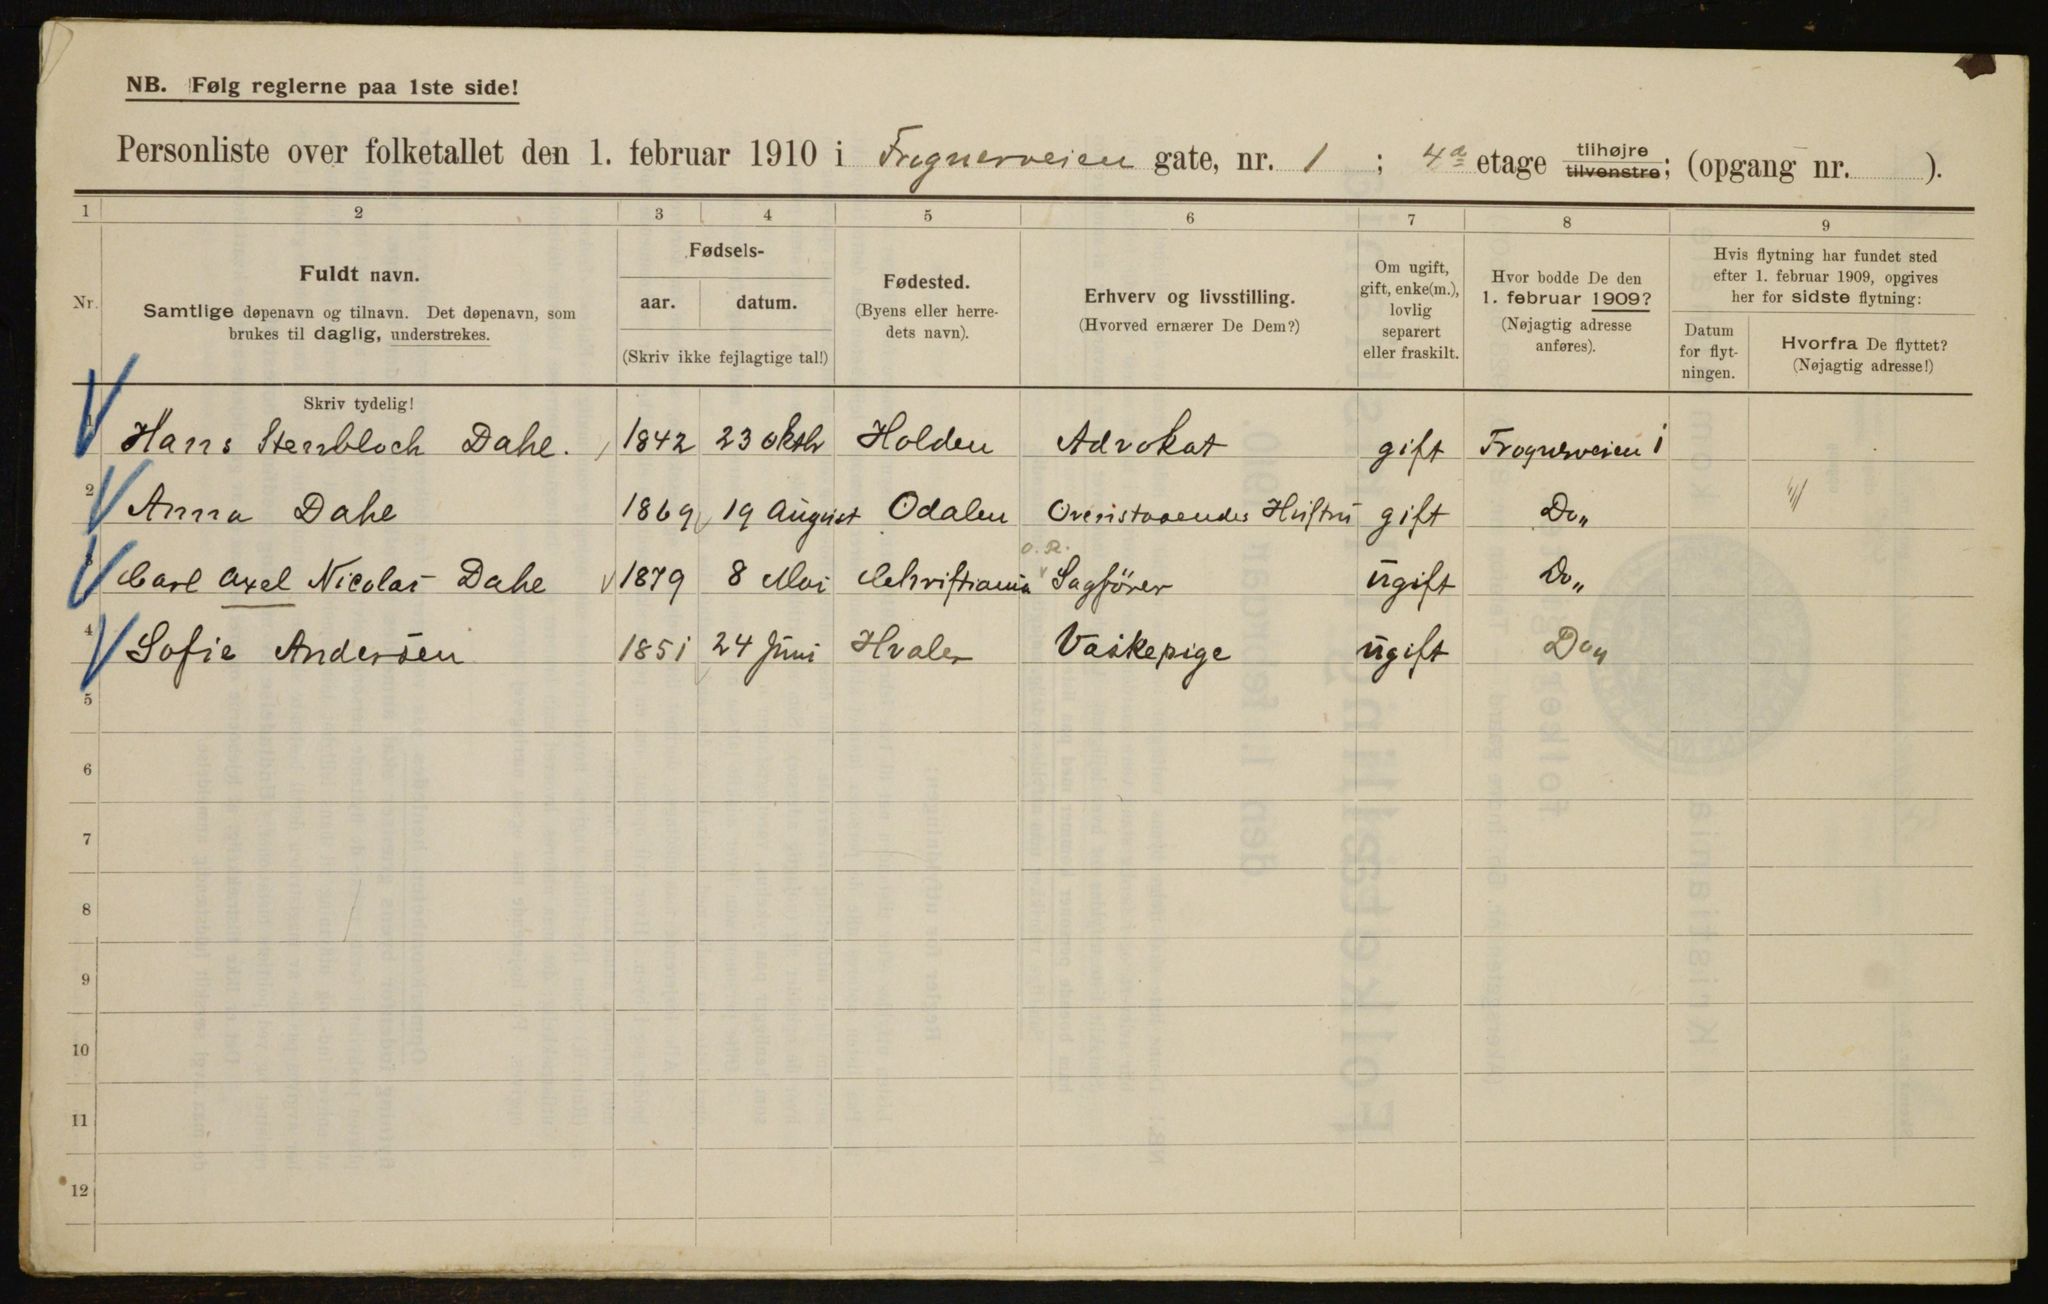 NB. Følg reglerne paa 1ste side!
Personliste over folketallet den 1. februar 1910 i Frognerveien gate, nr. 1 ; 4a etage tilhøjre tilvenstre; (opgang nr. ).
1 2 3 4 5 6 7 8 9
Nr.
Fuldt navn.
Samtlige døpenavn og tilnavn. Det døpenavn, som
brukes til daglig, understrekes.
Fødsels-
aar. datum.
(Skriv ikke fejlagtige tal!)
Fødested.
(Byens eller herre-
dets navn).
Erhverv og livsstilling.
(Hvorved ernærer De Dem?)
Om ugift,
gift, enke(m.),
lovlig
separert
eller fraskilt.
Hvor bodde De den
1. februar 1909?
(Nøjagtig adresse
anføres).
Hvis flytning har fundet sted
efter 1. februar 1909, opgives
her for sidste flytning:
Datum
for flyt-
ningen.
Hvorfra De flyttet?
(Nøjagtig adresse!)
Skriv tydelig!
Hans Stenbloch Dahl. 1842 23 oktbr Holden Advokat gift Frognerveien 1
2 Anna Dahl 1869 19 August Odalen Ovenstaaendes Hustru gift Do„
O. R.
3 Carl Axel Nicolai Dahl 1879 8 Mai Christiania Sagfører ugift Do„
4 Sofie Andersen 1851 24 Juni Hvaler Vaskepige ugift Do„
5
6
7
8
9
10
11
12